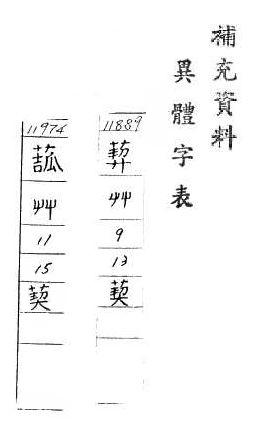 補充資料
異體字表
11889
艸
9
13
葜
11974
艸
11
15
葜